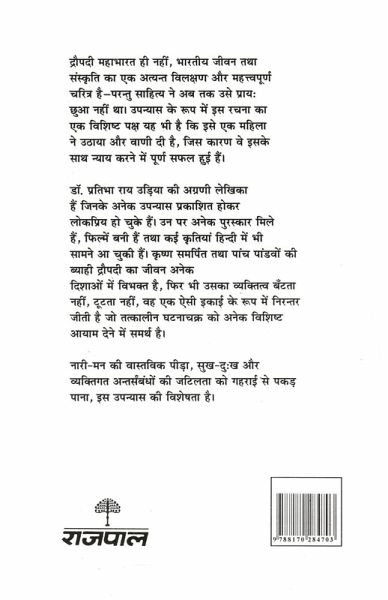 द्रौपदी महाभारत ही नहीं, भारतीय जीवन तथा
संस्कृति का एक अत्यन्त विलक्षण और महत्त्वपूर्ण
चरित्र है–परन्तु साहित्य ने अब तक उसे प्रायः
छुआ नहीं था। उपन्यास के रूप में इस रचना का
एक विशिष्ट पक्ष यह भी है कि इसे एक महिला
ने उठाया और वाणी दी है, जिस कारण वे इसके
साथ न्याय करने में पूर्ण सफल हुई हैं।
डॉ. प्रतिभा राय उड़िया की अग्रणी लेखिका
हैं जिनके अनेक उपन्यास प्रकाशित होकर
लोकप्रिय हो चुके हैं। उन पर अनेक पुरस्कार मिले
हैं, फिल्में बनी हैं तथा कई कृतियां हिन्दी में भी
सामने आ चुकी हैं। कृष्ण समर्पित तथा पांच पांडवों की
ब्याही द्रौपदी का जीवन अनेक
दिशाओं में विभक्त है, फिर भी उसका व्यक्तित्व बँटता
नहीं, टूटता नहीं, वह एक ऐसी इकाई के रूप में निरन्तर
जीती है जो तत्कालीन घटनाचक्र को अनेक विशिष्ट
आयाम देने में समर्थ है।
नारी-मन की वास्तविक पीड़ा, सुख-दुःख और
व्यक्तिगत अन्तर्संबंधों की जटिलता को गहराई से पकड़
पाना, इस उपन्यास की विशेषता है।
राजपाल
9 788170 284703